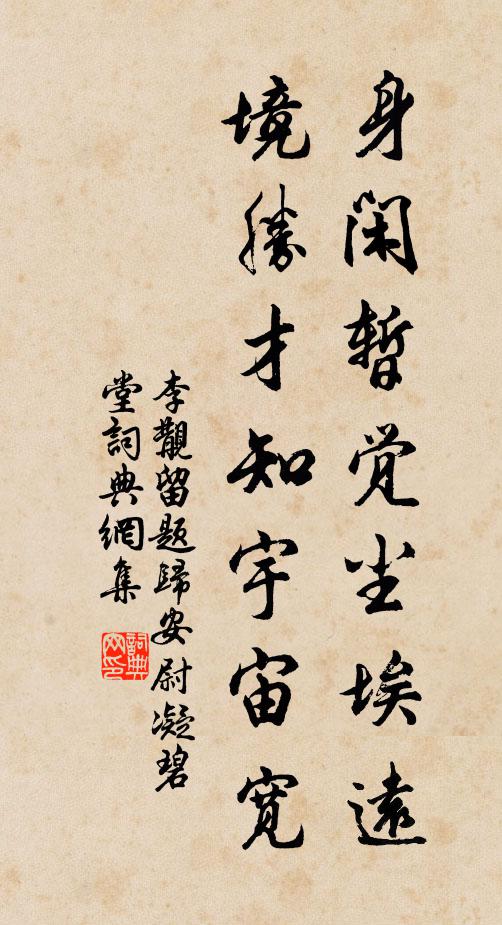 身闲暂觉尘埃远
境勝才知宇宙寬
李覯留题歸安尉凝碧
堂詞典網集
詞典网印